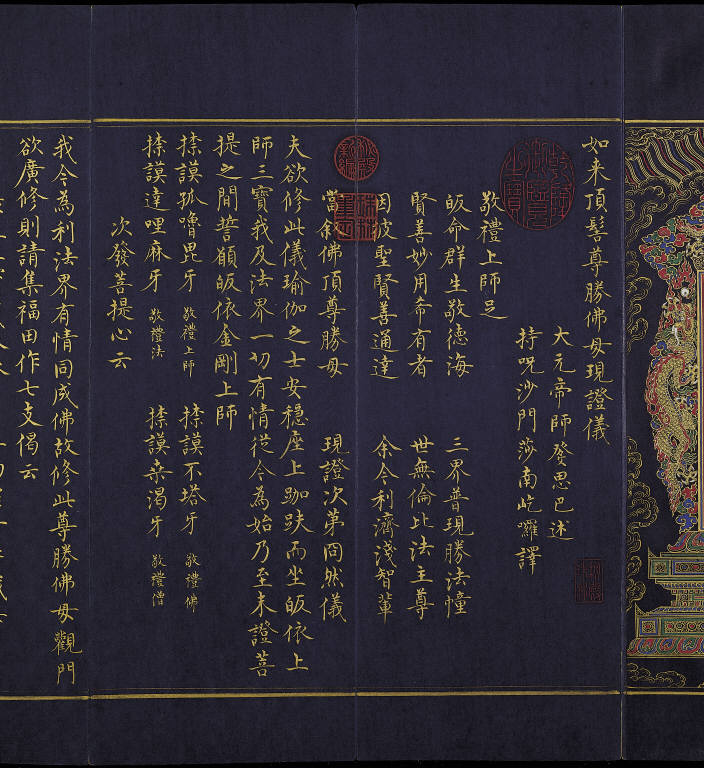 如来頂髻尊勝佛母現證儀
大元帝師發思巴述
持呪沙門莎南屹囉譯
敬禮上師足
皈命群生敬德海　三界普現勝法幢
賢善妙用希有者　世無倫比法主尊
因彼聖賢善通達　余今利濟淺智輩
當敘佛頂尊勝母　現證次第同然儀
夫欲修此儀瑜伽之士安穩座上跏趺而坐皈依上
師三寶我及法界一切有情從今為始乃至未證菩
提之間誓願皈依金剛上師
捺謨孤嚕毘牙 敬禮上師　捺謨不塔牙 敬禮佛
捺謨達哩麻牙 敬禮法　捺謨桒渴牙 敬禮僧
次發菩提心云
我今為利法界有情同成佛故修此尊勝佛母觀門
欲廣修則請集福田作七支偈云